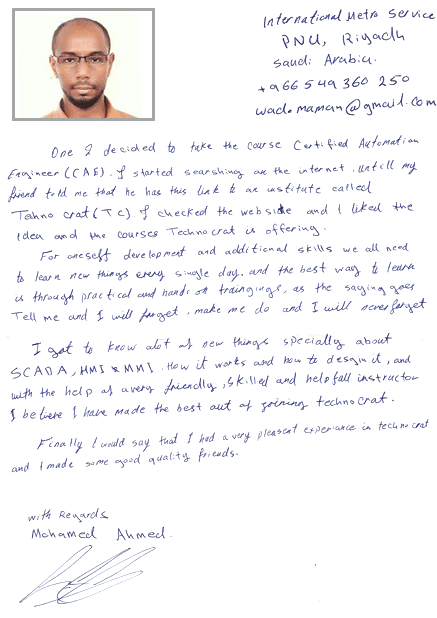 International Metro Service
PNU, Riyadh
Saudi Arabia.
+966 549 360 250
wado.maman@gmail.com
One I decided to take the course Certified Automation
Engineer (CAE). I started searshing on the internet, untill my
friend told me that he has this link to an institute called
Tehno crat (TC). I checked the webside and I liked the
Idea and the courses Technocrat is offering.
For oneself development and additional skills we all need
to learn new things every single day, and the best way to learn
is through practical and hands on traingings, as the saying goes
Tell me and I will forget, make me do and I will never forget
I got to know alot of new things specially about
SCADA, HMI & MMI. How it works and how to design it, and
with the help of a very friendly, skilled and helpfull instructor
I believe I have made the best out of joining technocrat.
Finally I would say that I had a very pleasent experience in technocrat
and I made some good quality friends.
with Regards
Mohamed Ahmed.